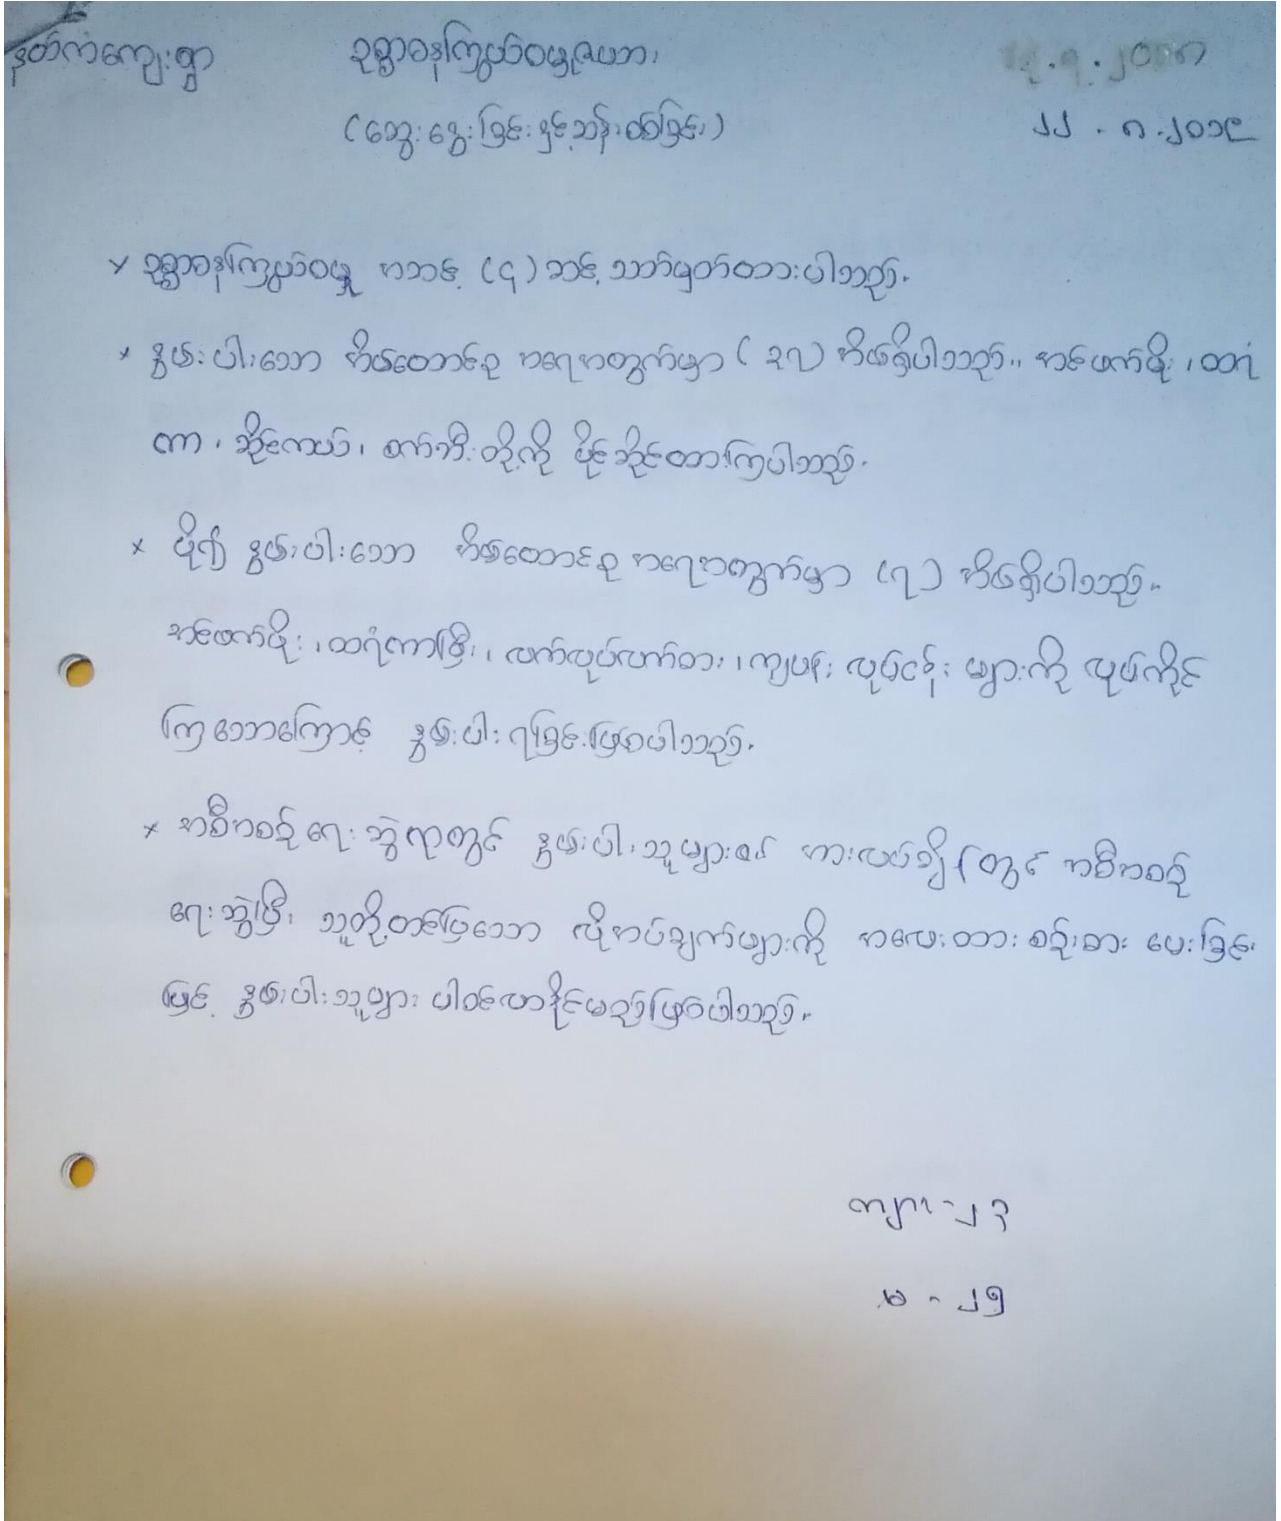 နတ်ကံကျေးရွာ ဥစ္စာဓနကြွယ်ဝမှုဇယား
(ဆွေးနွေးခြင်းနှင့်ဆန်းစစ်ခြင်း) ၂၂.၈.၂၀၁၉
x ဥစ္စာဓနကြွယ်ဝမှု အဆင့် (၄) ဆင့် သတ်မှတ်ထားပါသည်။
x နွမ်းပါးသော အိမ်ထောင်စု အရေအတွက်မှာ (၃၇) အိမ်ရှိပါသည်။ အင်ဖက်မိုး၊ ထရံ
ကာ၊ ဆိုင်ကယ်၊ စက်ဘီးတို့ကို ပိုင်ဆိုင်ထားကြပါသည်။
x ပို၍ နွမ်းပါးသော အိမ်ထောင်စု အရေအတွက်မှာ (၇) အိမ်ရှိပါသည်။
အင်ဖက်မိုး၊ ထရံကာပြီး၊ လက်လုပ်လက်စား၊ ကျပန်း လုပ်ငန်းများကို လုပ်ကိုင်
ကြသောကြောင့် နွမ်းပါးရခြင်းဖြစ်ပါသည်။
x အစီအစဉ်ရေးဆွဲရာတွင် နွမ်းပါးသူများ၏ အားလပ်ချိန်တွင် အစီအစဉ်
ရေးဆွဲပြီး သူတို့တင်ပြသော လိုအပ်ချက်များကို အလေးထား စဉ်းစားပေးခြင်း
ဖြင့် နွမ်းပါးသူများ ပါဝင်လာနိုင်မည်ဖြစ်ပါသည်။
ကျား-၂၃
မ-၂၅